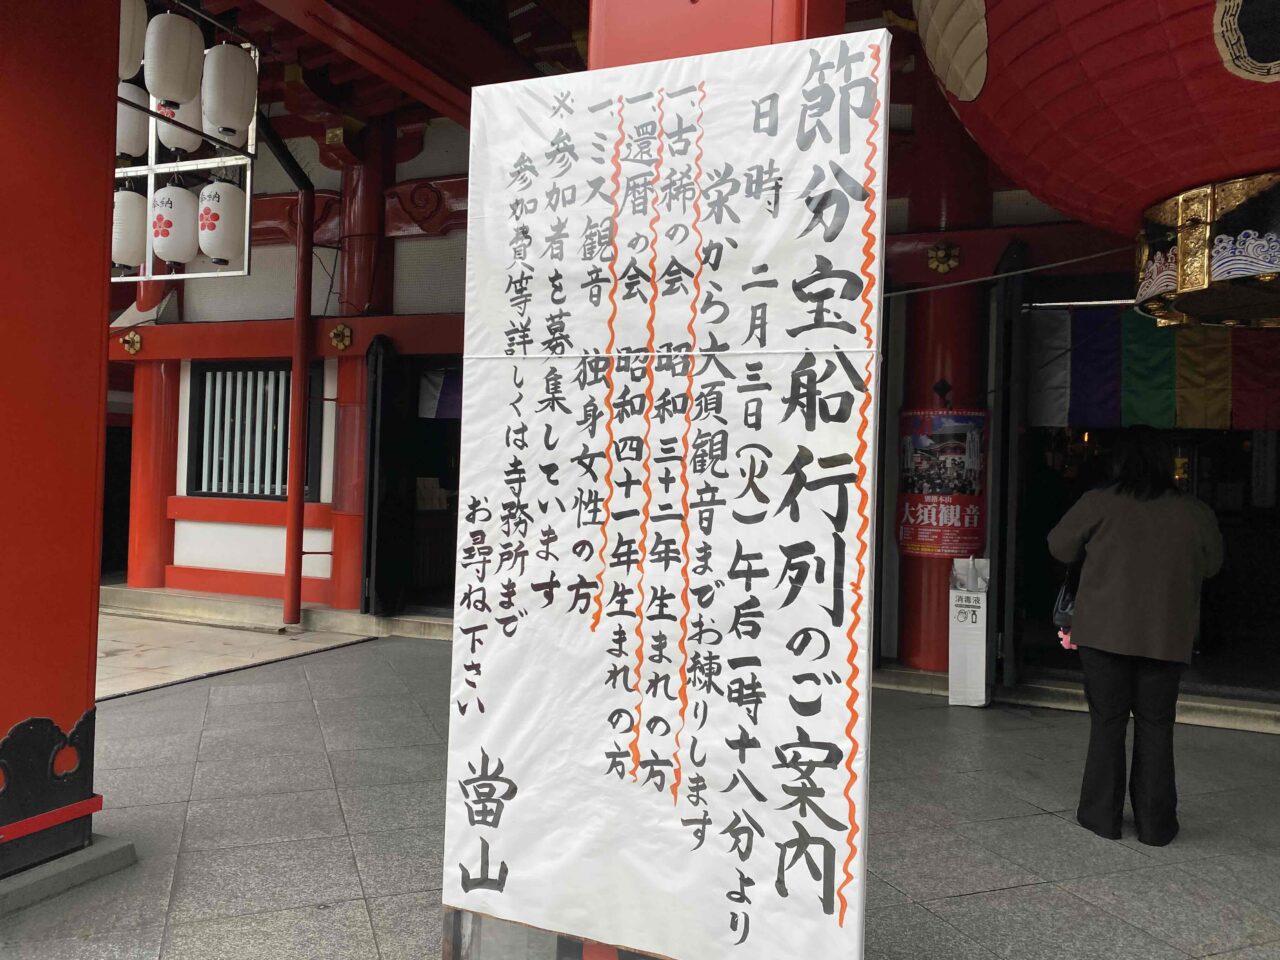 節分宝船行列のご案内
日時 二月三日(火)午后一時十八分より
栄から大須観音までお練りします
一、古稀の会 昭和三十二年生まれの方
一、還暦の会 昭和四十一年生まれの方
一、ミス観音 独身女性の方
※参加者を募集しています
参加費等詳しくは寺務所まで
お尋ね下さい
當山
奉納
奉納
別格本山
大須観音
消毒液